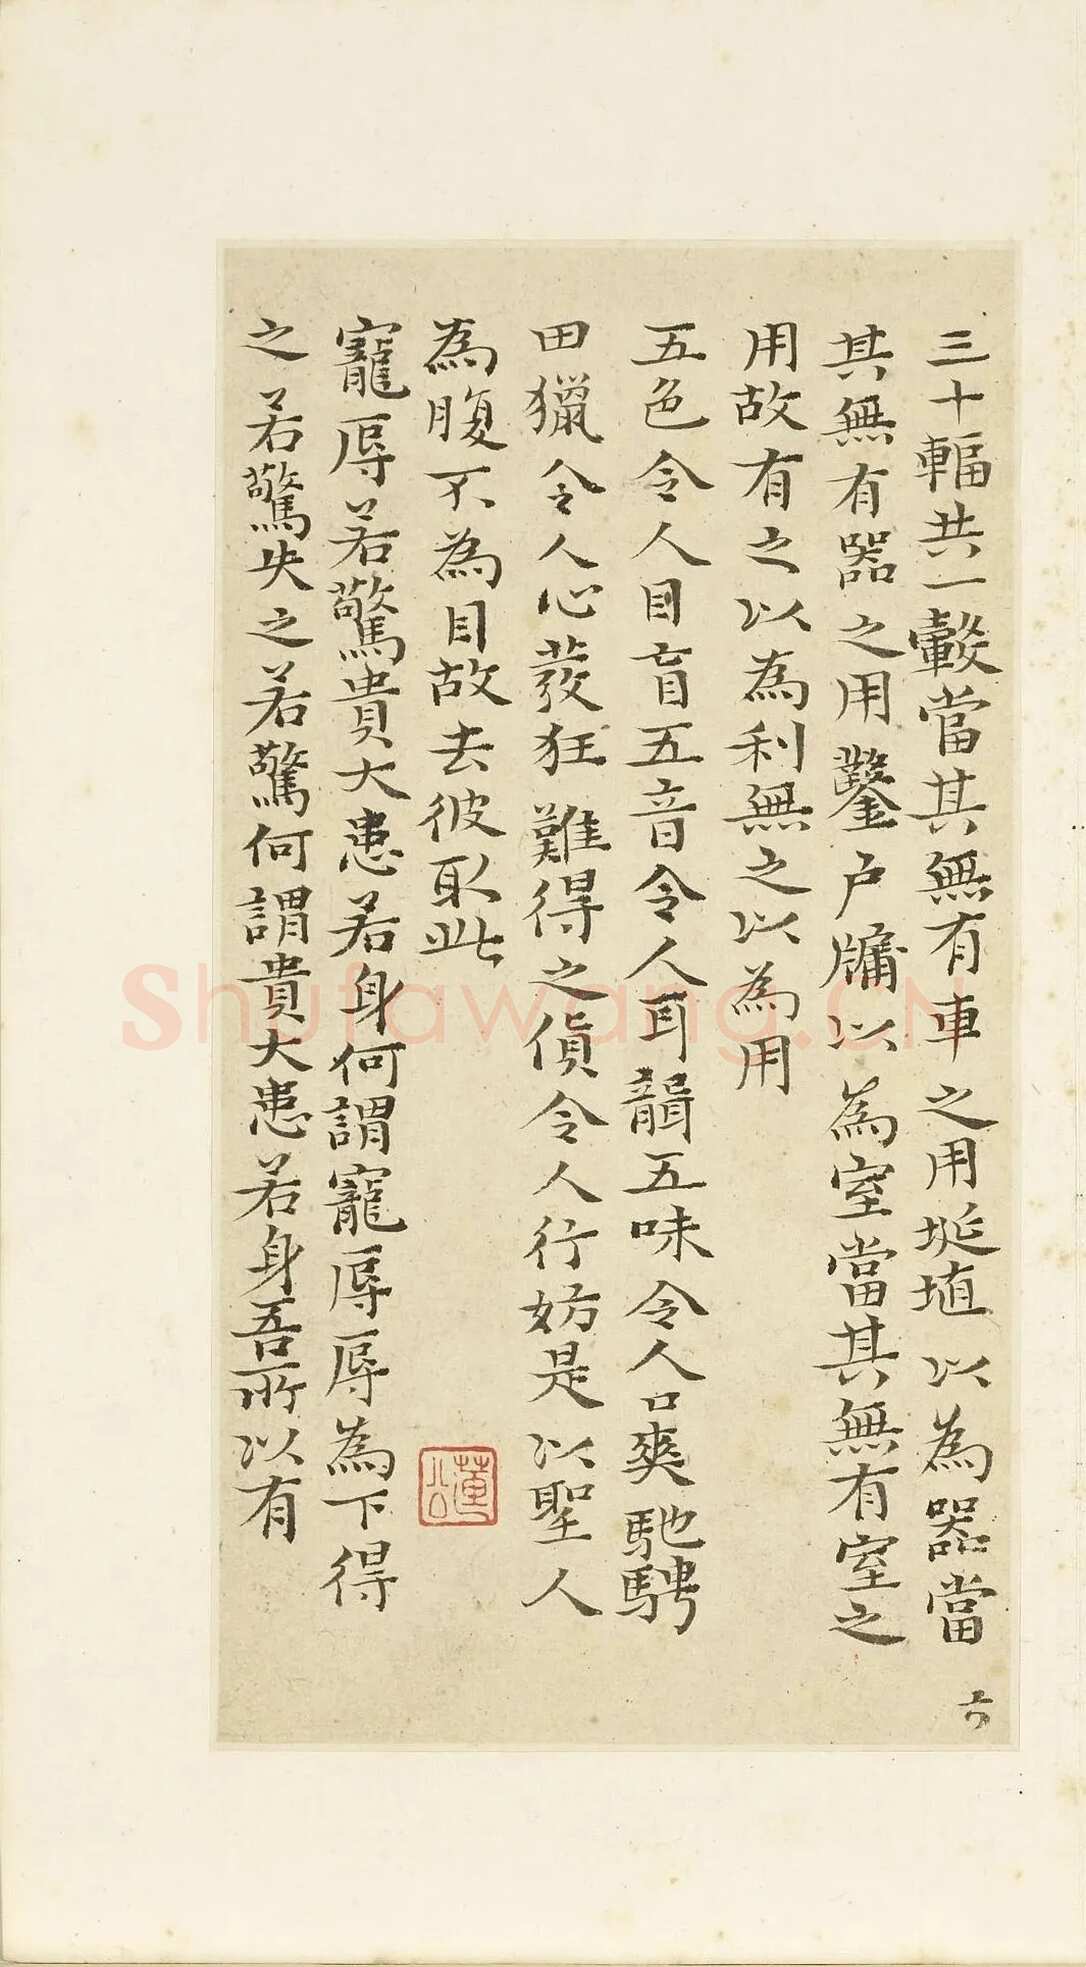 三十輻共一轂當其無有車之用埏埴以為器當
其無有器之用鑿户牗以為室當其無有室之
用故有之以為利無之以為用
五色令人目盲五音令人耳聾五味令人口爽馳騁
田獵令人心發狂難得之貨令人行妨是以聖人
為腹不為目故去彼取此
寵辱若驚貴大患若身何謂寵辱辱為下得
之若驚失之若驚何謂貴大患若身吾所以有
六
董公
Shufawang.CN